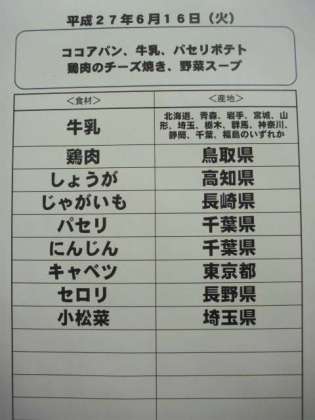 平成27年6月16日(火)
ココアパン、牛乳、パセリポテト
鶏肉のチーズ焼き、野菜スープ
<食材> <産地>
牛乳 北海道、青森、岩手、宮城、山
形、埼玉、栃木、群馬、神奈川、
静岡、千葉、福島のいずれか
鶏肉 鳥取県
しょうが 高知県
じゃがいも 長崎県
パセリ 千葉県
にんじん 千葉県
キャベツ 東京都
セロリ 長野県
小松菜 埼玉県